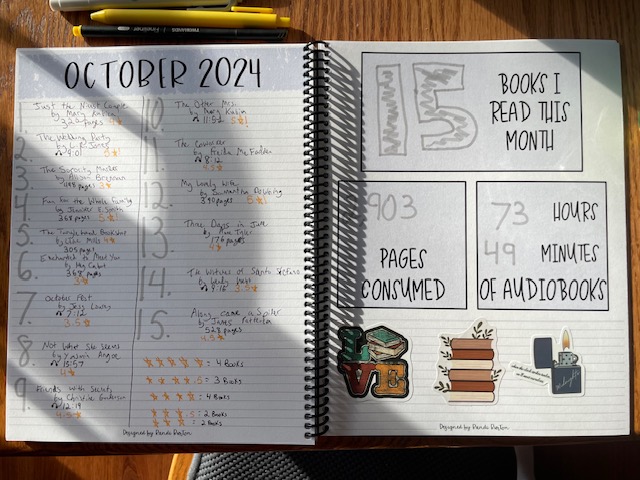 OCTOBER 2024
1. Just the Nicest Couple
by Mary Kubica
320 pages 4
2. The Wedding Party
by L. R. Jones
9:01 5!
3. The Sorority Murder
by Allison Brennan
488 pages 3
4. Fun for the Whole Family
by Jennifer E. Smith
368 pages 5
5. The
Bookshop
by Mills 4
305 pages
6. Enchanted to Meet You
by Meg Cabot
368 pages
3
7. October Post
by Jess
7:12
3.5
8. Not What She Seems
by Yasmin Angoe
13:57
9. Friends With Secrets
by Christine Gunderson
12:19
4.5
10. The Other Mrs.
by Mary Kubica
11:52 5!
11. The Coworker
by Freida McFadden
8:12
4.5
12. My Lovely Wife
by Samantha Downing
390 pages 5!
13. Three Days in June
by Anne Tyler
176 pages
14. The Witches of Santo Stefano
by Wendy
9:16 3.5
15. Along Came a Spider
by James Patterson
528 pages
4.5
= 4 Books
.5 = 3 Books
= 4 Books
.5 = 2 Books
= 2 Books
Designed by
15
BOOKS I
READ THIS
MONTH
903
PAGES
CONSUMED
73 HOURS
49 MINUTES
OF AUDIOBOOKS
LOVE
Designed by